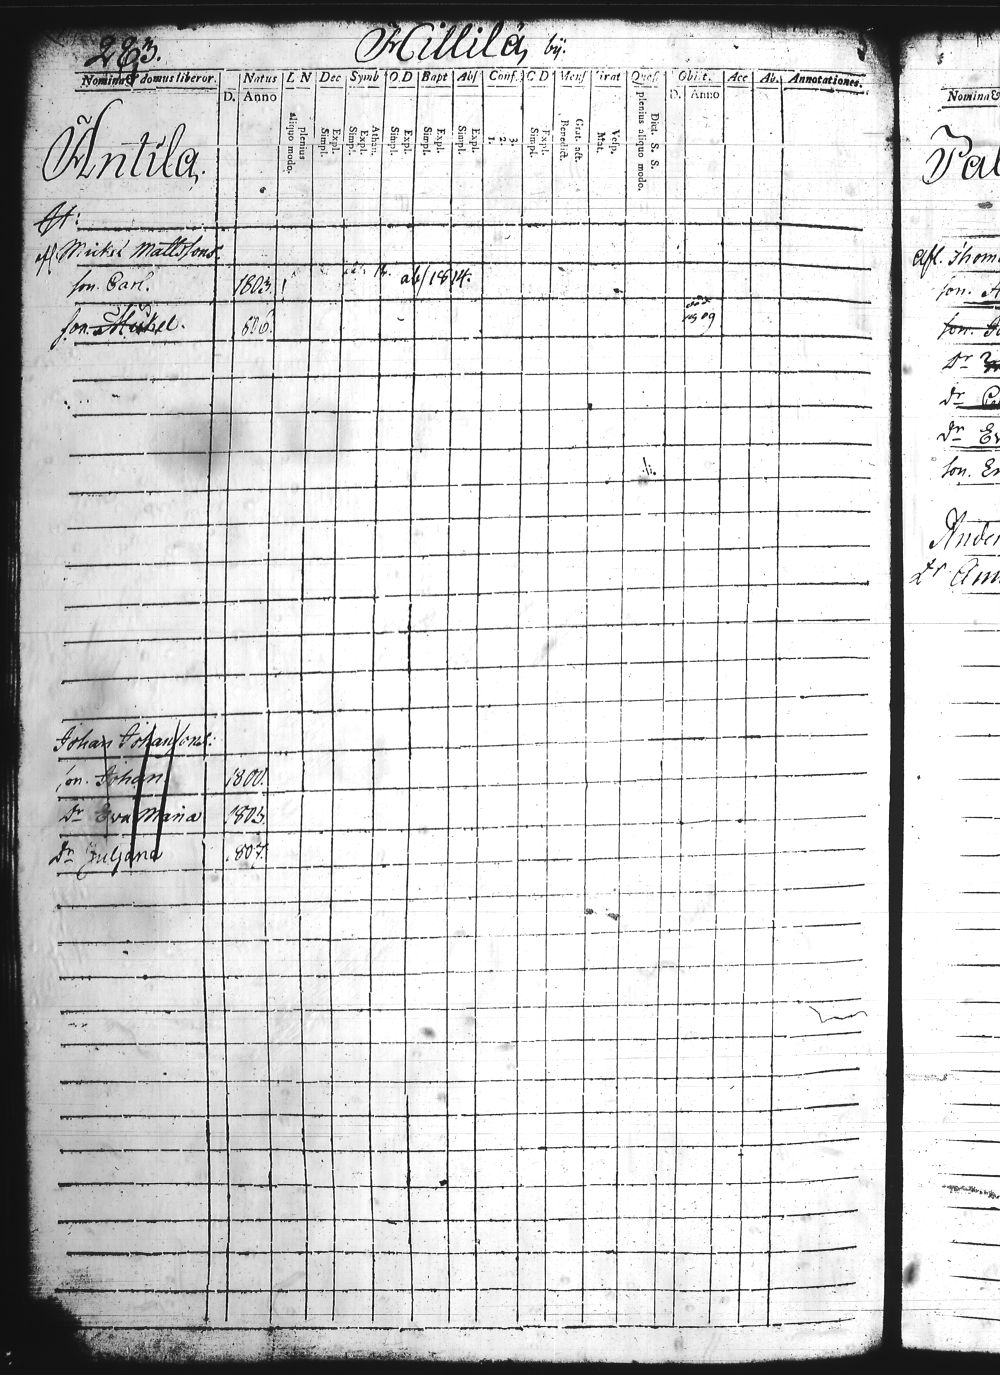 283.
Hillilä, by.
Nomina & domus liberor. Natus L N Dec Symb O.D Bapt Abs Conf. C D Mens Grat Quæs. Obiit. Acc Ab. Annotationes.
D. Anno plenius aliquo modo. Expl. Simpl. Athan. Expl. Simpl. Expl. Simpl. Expl. Simpl. Expl. Simpl. 3. 2. 1. Expl. Simpl. Grat. act. Benedict. Vesp. Mat. Dict. S. S. plenius aliquo modo. D. Anno
Antila.
afl Mickel Mattssons
son. Carl. 1803. ab/1814.
son. Mickel. 806. död 1809
Johan Johanssons:
son. Johan 1800.
Dr Eva Maria 1803.
Dr Juljana 807.
Nomina &
Pal
afl. Thom
son. A
son.
Dr
Dr
Dr Ev
son. Er
Ander
Dr Ann